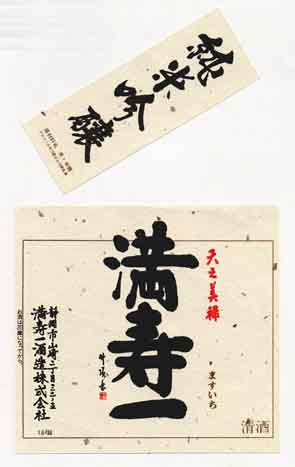 純米吟醸
天之美禄
満寿一
ますいち
清酒
静岡市山崎二丁目三三-五
満寿一酒造株式会社
お酒は20歳になってから。
1.8ℓ詰